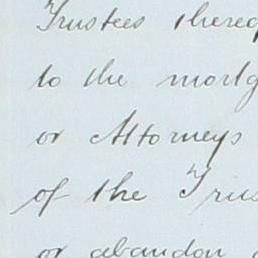 Trustees thereo
to the mortg
or Attorneys
of the Trus
or abandon